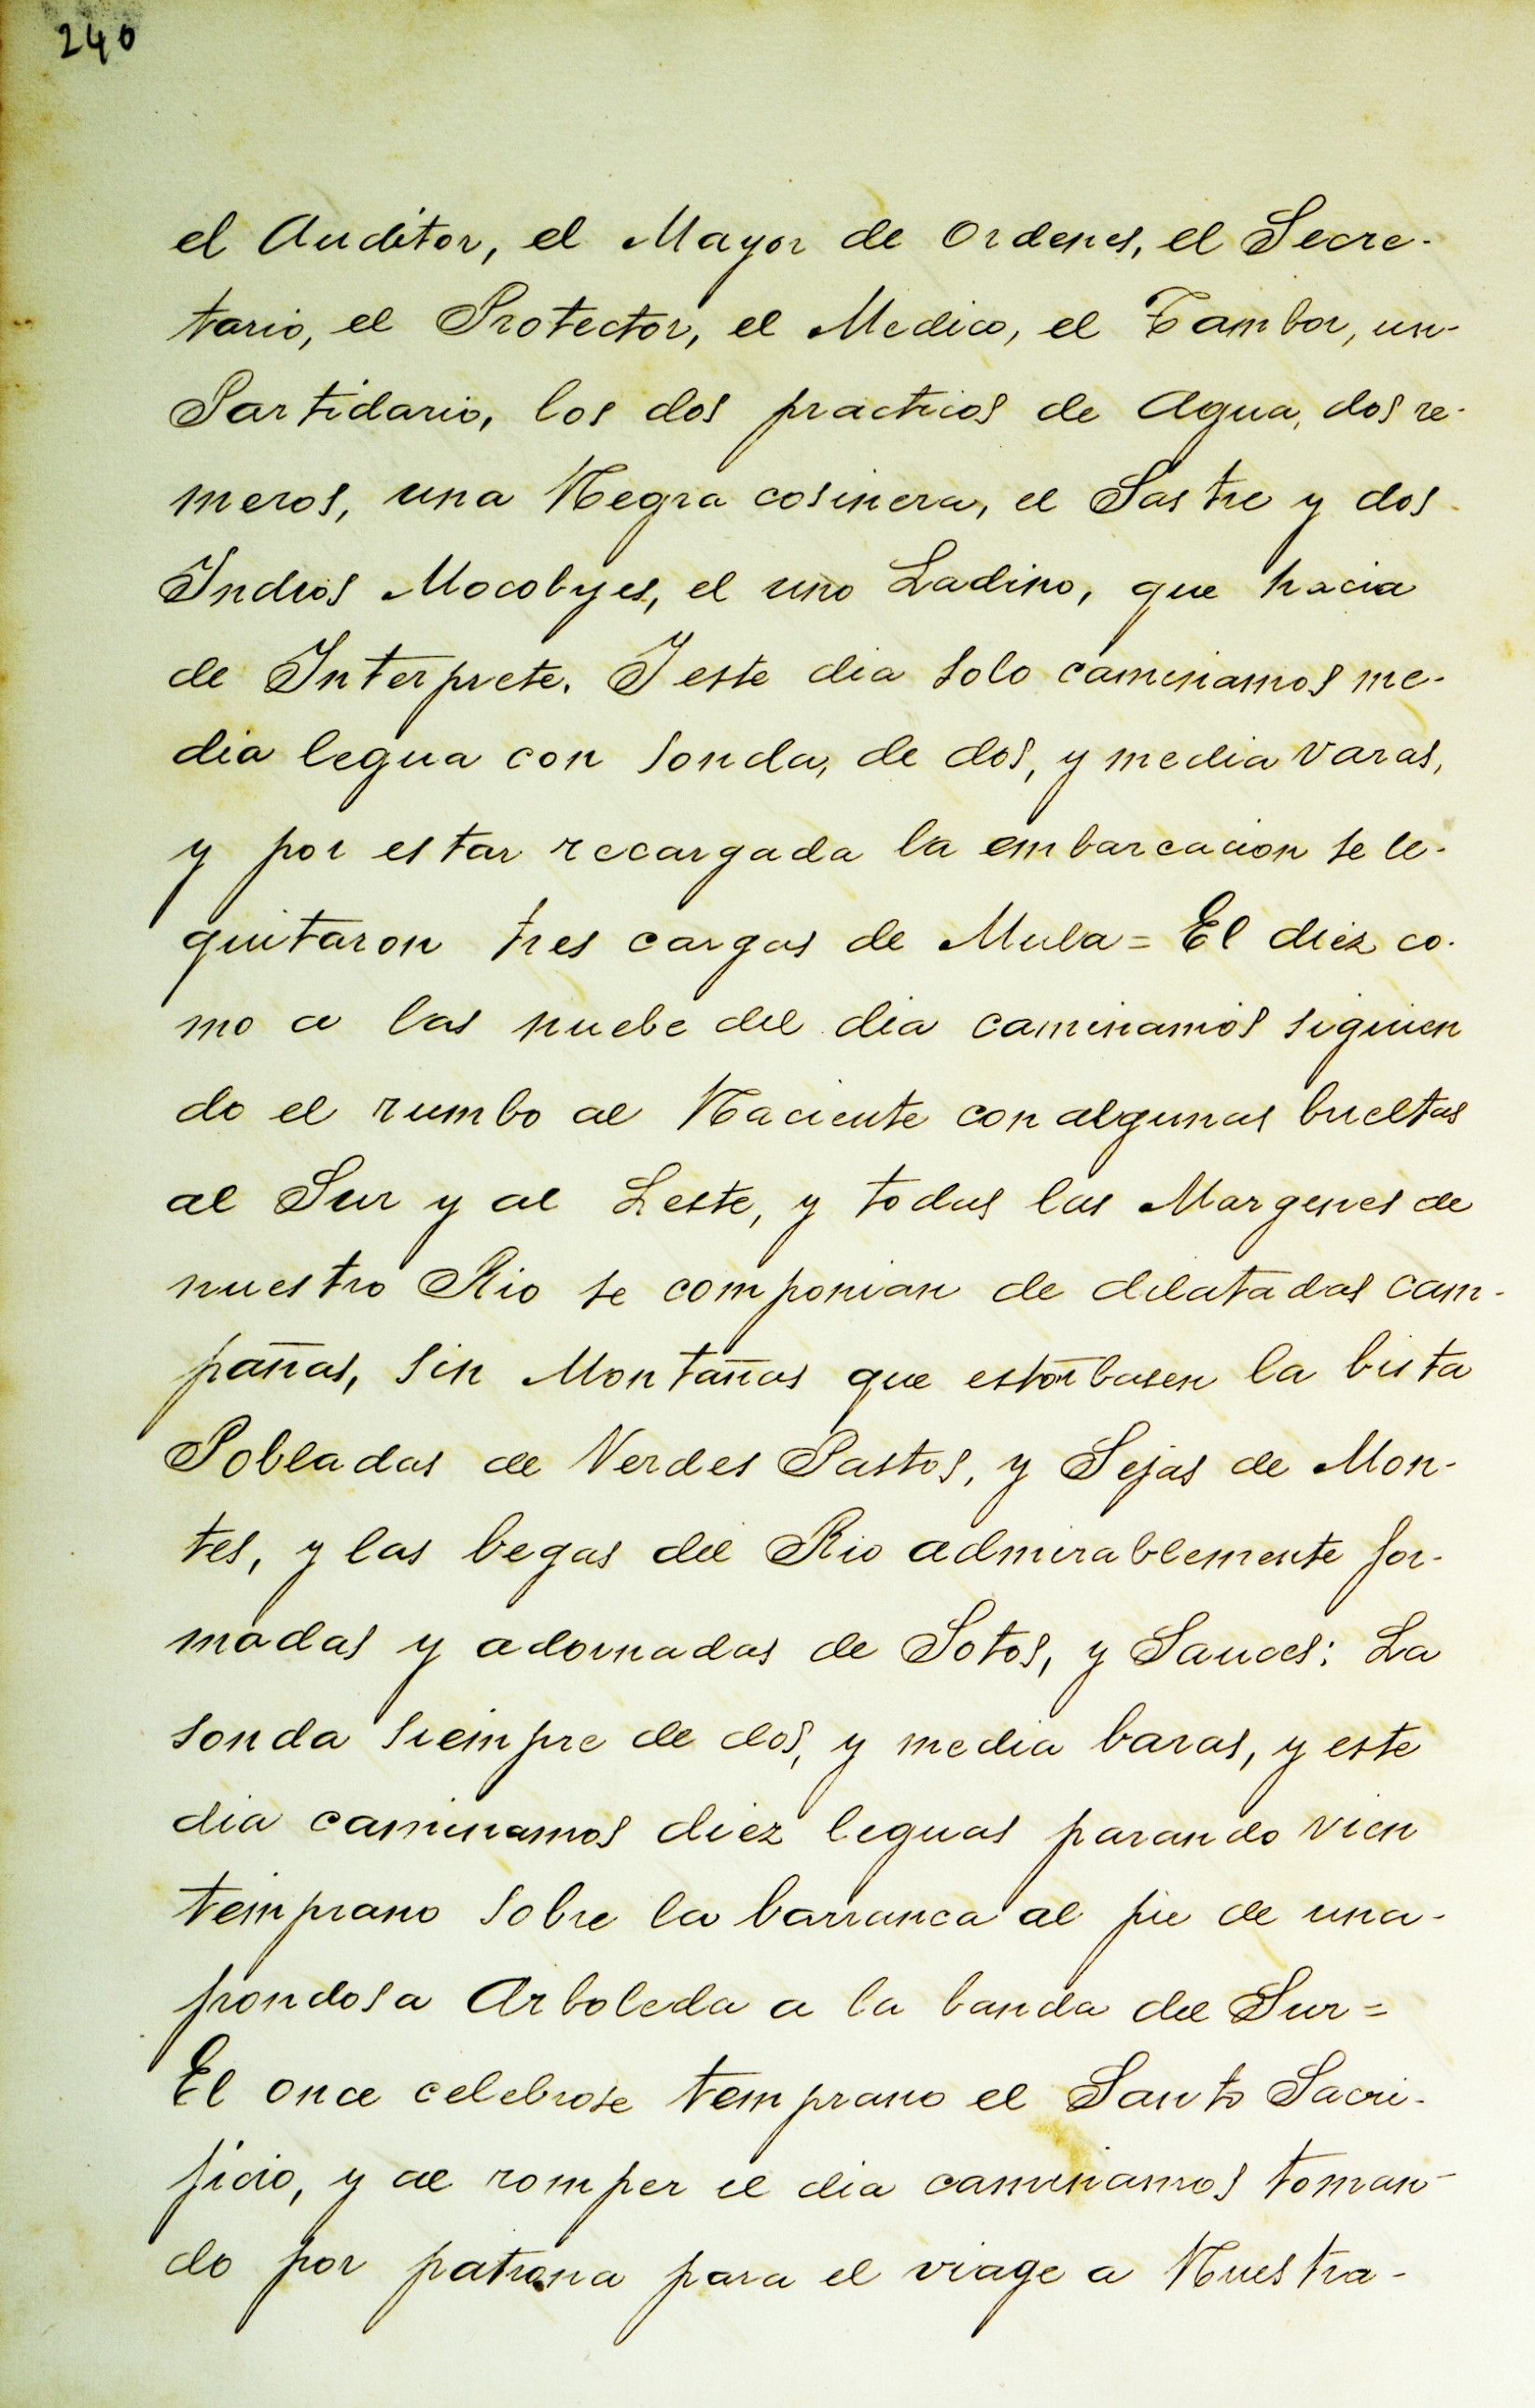 240
el Auditor, el Mayor de Ordenes, el Secre-
tario, el Protector, el Medico, el Tambor, un-
Partidario, los dos practicos de Agua, dos re-
meros, una Negra cosinera, el Sastre y dos
Indios Mocobyes, el uno Ladino, que hacia
de Interprete. I este dia solo caminamos me-
dia legua con sonda, de dos, y media varas,
y por estar recargada la embarcacion se le-
quitaron tres cargas de Mula = El diez co-
mo a las nuebe del dia caminamos siguien
do el rumbo al Naciente con algunas bueltas
al Sur y al Leste, y todas las Margenes de
nuestro Rio se componian de dilatadas cam-
pañas, sin Montañas que estorbasen la bista
Pobladas de Verdes Pastos, y Sejas de Mon-
tes, y las begas del Rio admirablemente for-
madas y adornadas de Sotos, y Sauces: La
sonda siempre de dos, y media baras, y este
dia caminamos diez leguas parando vien
temprano sobre la barranca al pie de una-
frondosa Arboleda a la banda del Sur =
El once celebrose temprano el Santo Sacri-
ficio, y al romper el dia caminamos toman-
do por patrona para el viage a Nuestra-